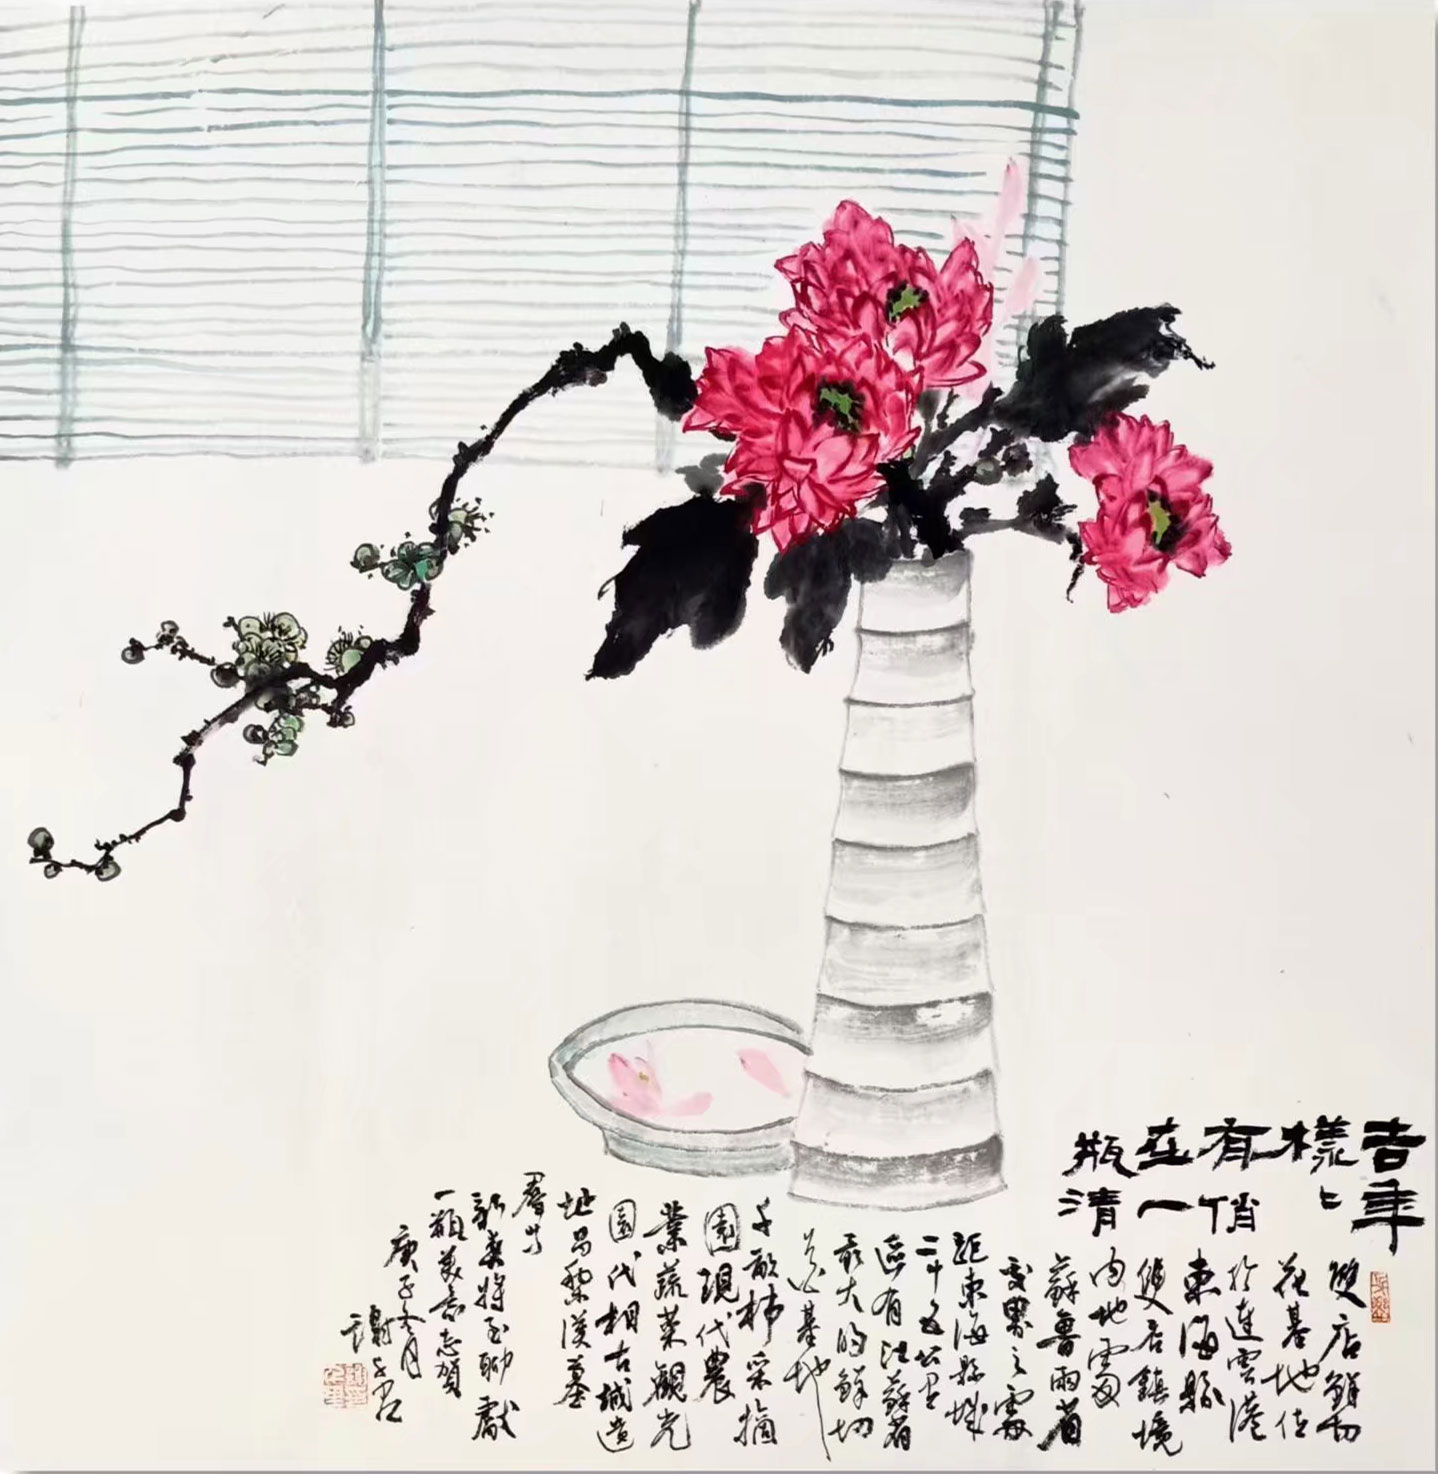 吉年
樣々
有俏
在一
瓶清
雙店鮮切
花基地位
於連雲港
東海縣
雙店鎮境
內地處
蘇魯兩省
交界之處
距東海縣城
二十五公里
區有江蘇省
最大的鮮切
花基地
千畝柿采摘
園現代農
業蔬菜觀光
園代相古城造
址昌黎漢墓
羣等
新春將至聊獻
一瓶美意志賀
庚子冬月
謝